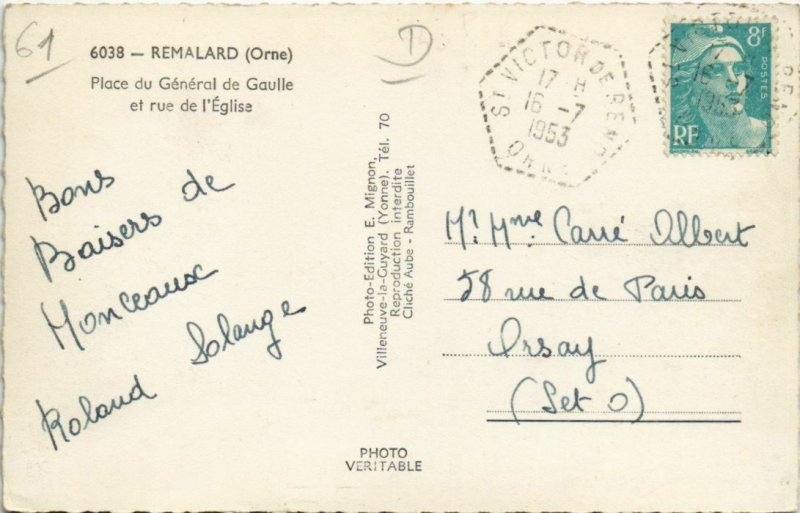 61
6038 — REMALARD (Orne)
Place du Général de Gaulle
et rue de l'Église
D
Bons
Baisers de
Monceaux
Solange
Roland
Photo-Edition E. Mignon,
Villeneuve-la-Guyard (Yonne). Tél. 70
Reproduction interdite
Cliché Aube - Rambouillet
PHOTO
VERITABLE
ST VICTOR DE RENO
17 H
16 - 7
1953
ORNE
8F
POSTES
RF
16 - 7
1953
Mr. Mme. Carré Albert
58 rue de Paris
Orsay
(Set O)